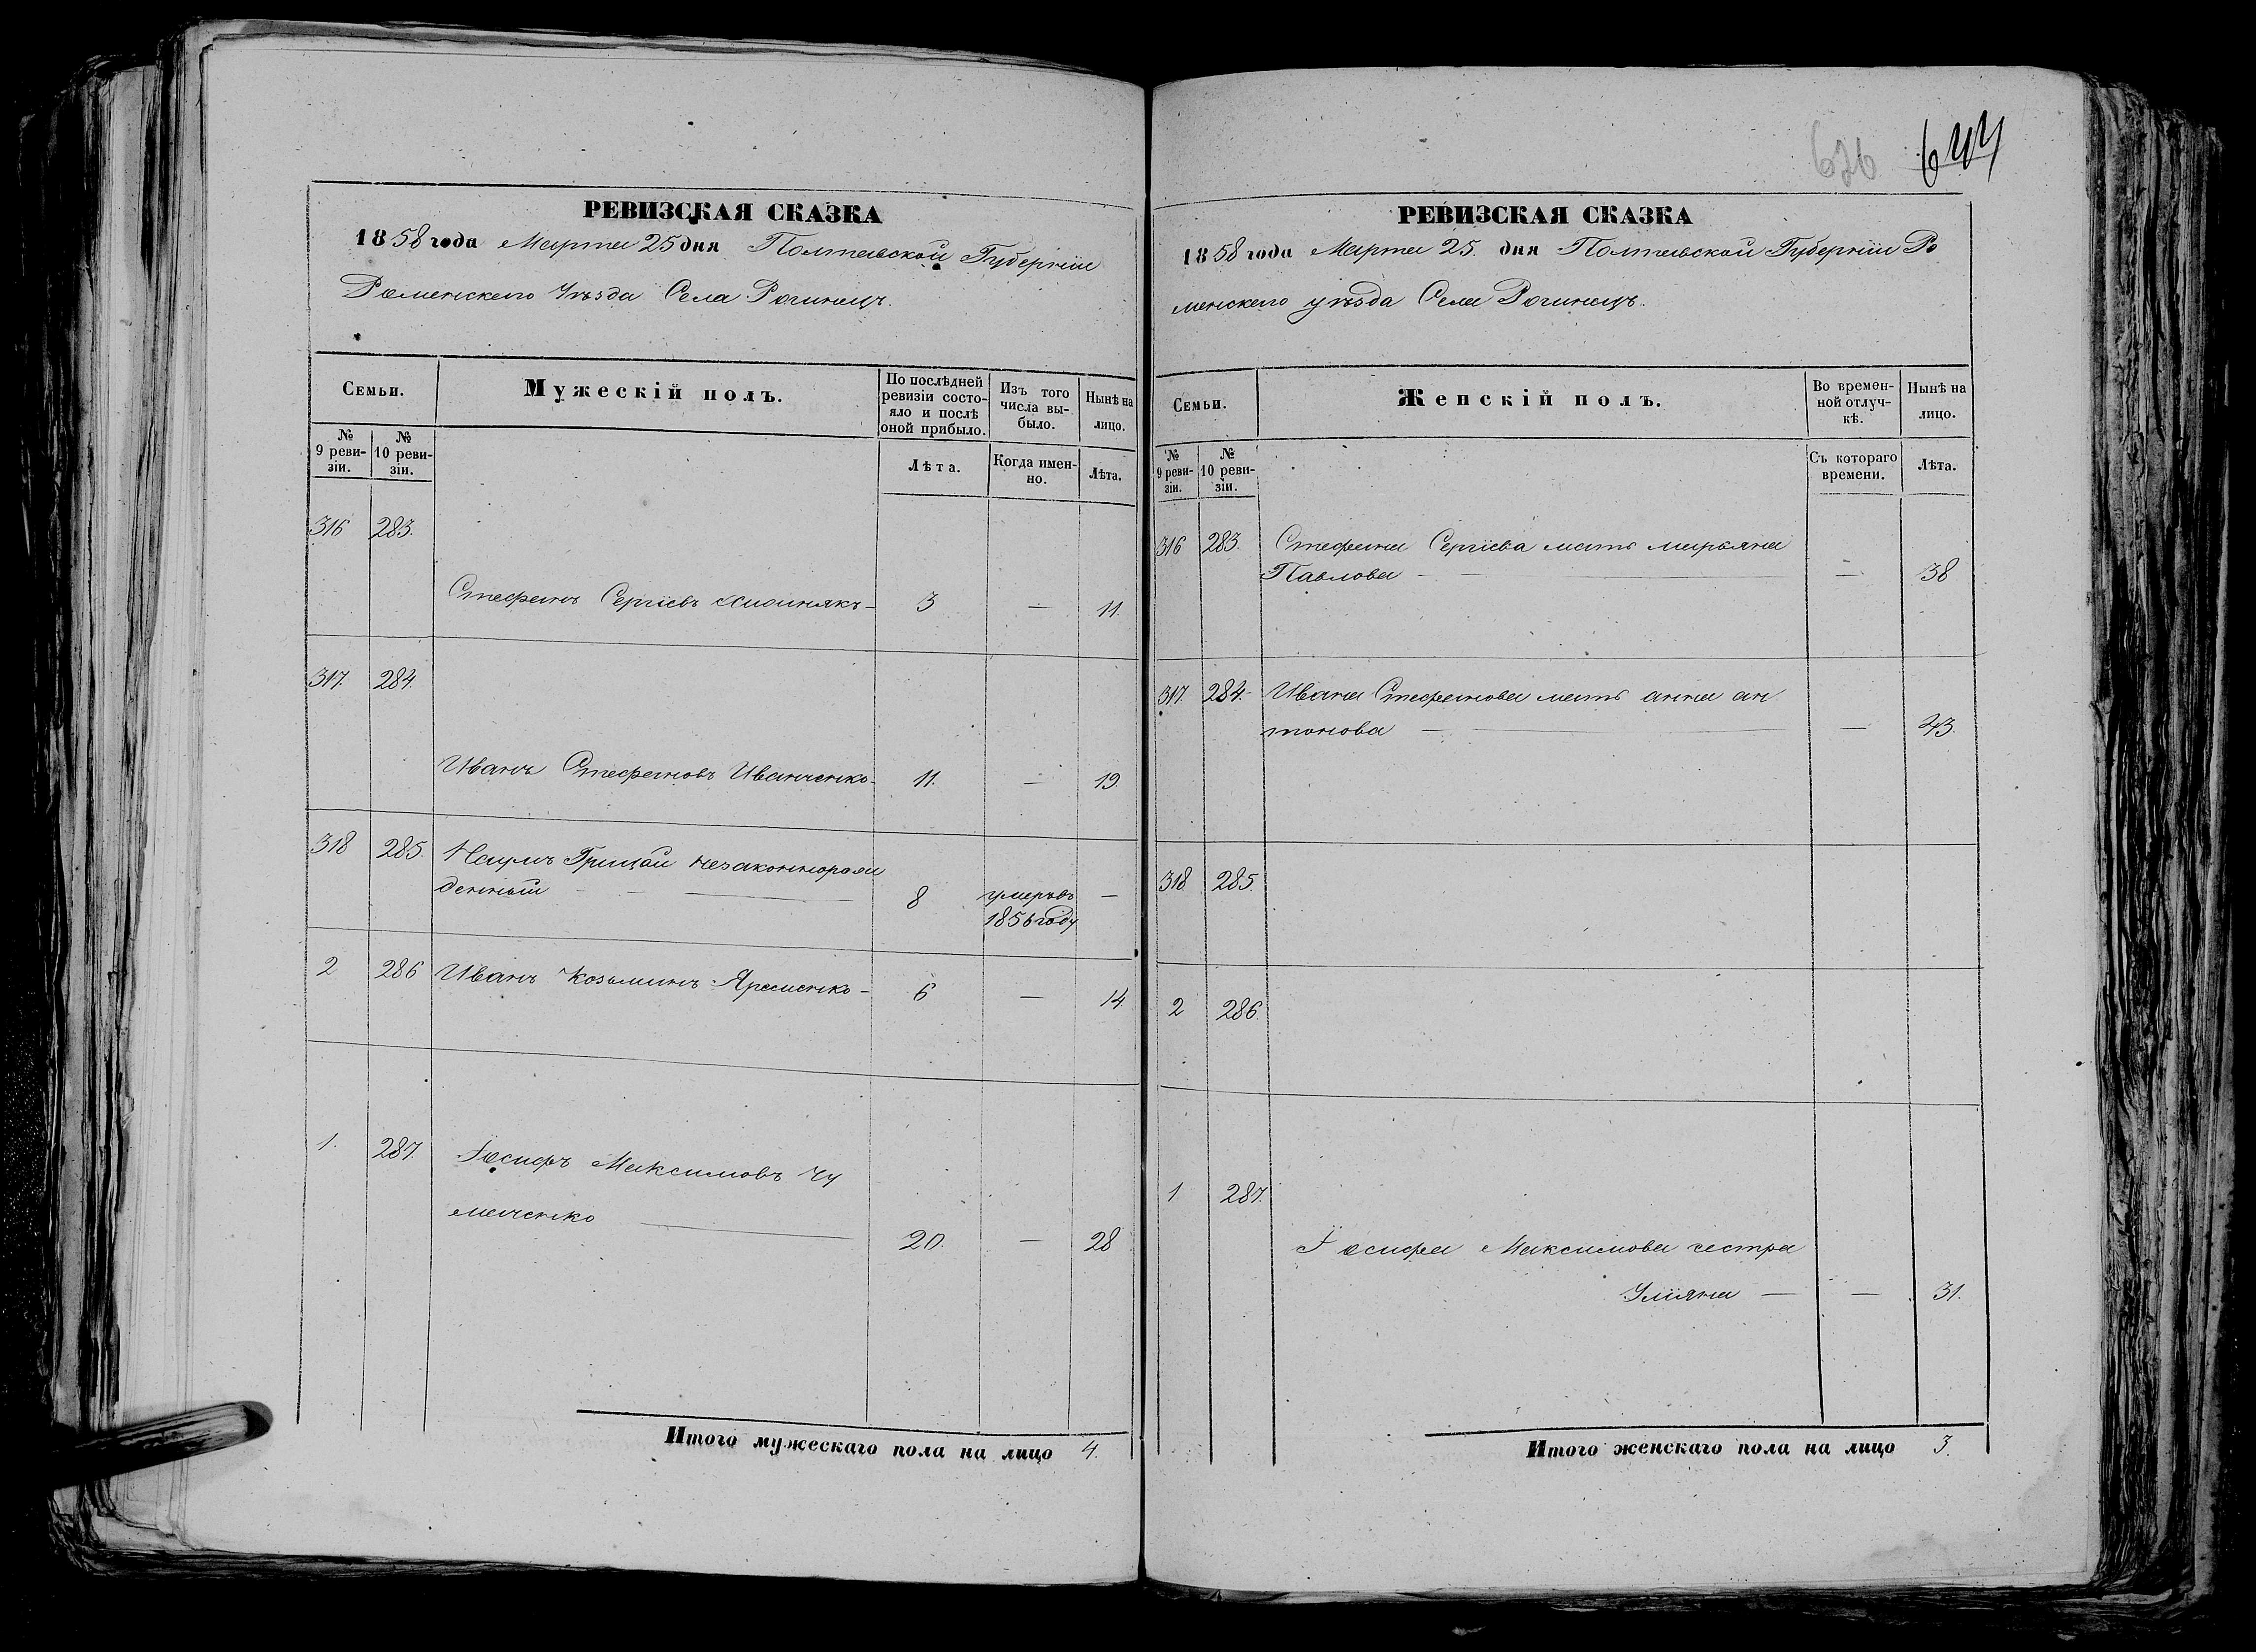 626 644
РЕВИЗСКАЯ СКАЗКА
1858 года Марта 25 дня Полтавской Губерніи
Роменского Уѣзда Села Рогинецъ.
Семьи.
Мужескій полъ.
По послѣдней ревизіи состояло и послѣ оной прибыло.
Изъ того числа выбыло.
Нынѣ на лицо.
№ 9 ревизіи.
№ 10 ревизіи.
Лѣта.
Когда именно.
Лѣта.
316 283.
Стефанъ Сергіевъ — 3 — 11.
317. 284.
Иванъ Стефановъ Иванченко — 11. — 19.
318 285. Наумъ Грицай незаконнорож
денный — 8 умеръ въ —
1856 году
2 286 Иванъ Козьминъ Яременко — 6 — 14.
1. 287. Іосифъ Максимовъ Чу
маченко — 20. — 28
Итого мужескаго пола на лицо 4.
РЕВИЗСКАЯ СКАЗКА
1858 года Марта 25. дня Полтавской Губерніи Ро
менского уѣзда Села Рогинецъ.
Семьи.
Женскій полъ.
Во временной отлучкѣ.
Нынѣ на лицо.
№ 9 ревизіи.
№ 10 ревизіи.
Съ котораго времени.
Лѣта.
316 283. Стефана Сергіева мать марьяна
Павлова — — 38
317. 284. Ивана Стефанова мать анна ан
тонова — — 43.
318. 285.
2 286.
1 287.
Іосифа Максимова сестра
Уліяна — — 31.
Итого женскаго пола на лицо 3.